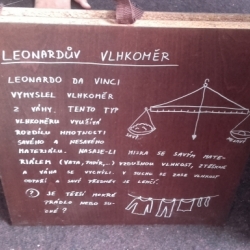 LEONARDŮV VLHKOMĚR
LEONARDO DA VINCI
VYMYSLEL VLHKOMĚR
Z VÁHY. TENTO TYP
VLHKOMĚRU VYUŽÍVÁ
ROZDÍLU HMOTNOSTI
SAVÉHO A NESAVÉHO
MATERIÁLU. NASAJE-LI MISKA SE SAVÝM MATE-
RIÁLEM (VATA, PAPÍR,..) VZDUŠNOU VLHKOST, ZTĚŽKNE
A VÁHA SE VYCHÝLÍ. V SUCHU SE ZASE VLHKOST
ODPAŘÍ A SAVÝ PŘEDMĚT JE LEHČÍ.
? SE TĚŠÍ MOKRÉ
PRÁDLO NEBO SU-
CHÉ ?